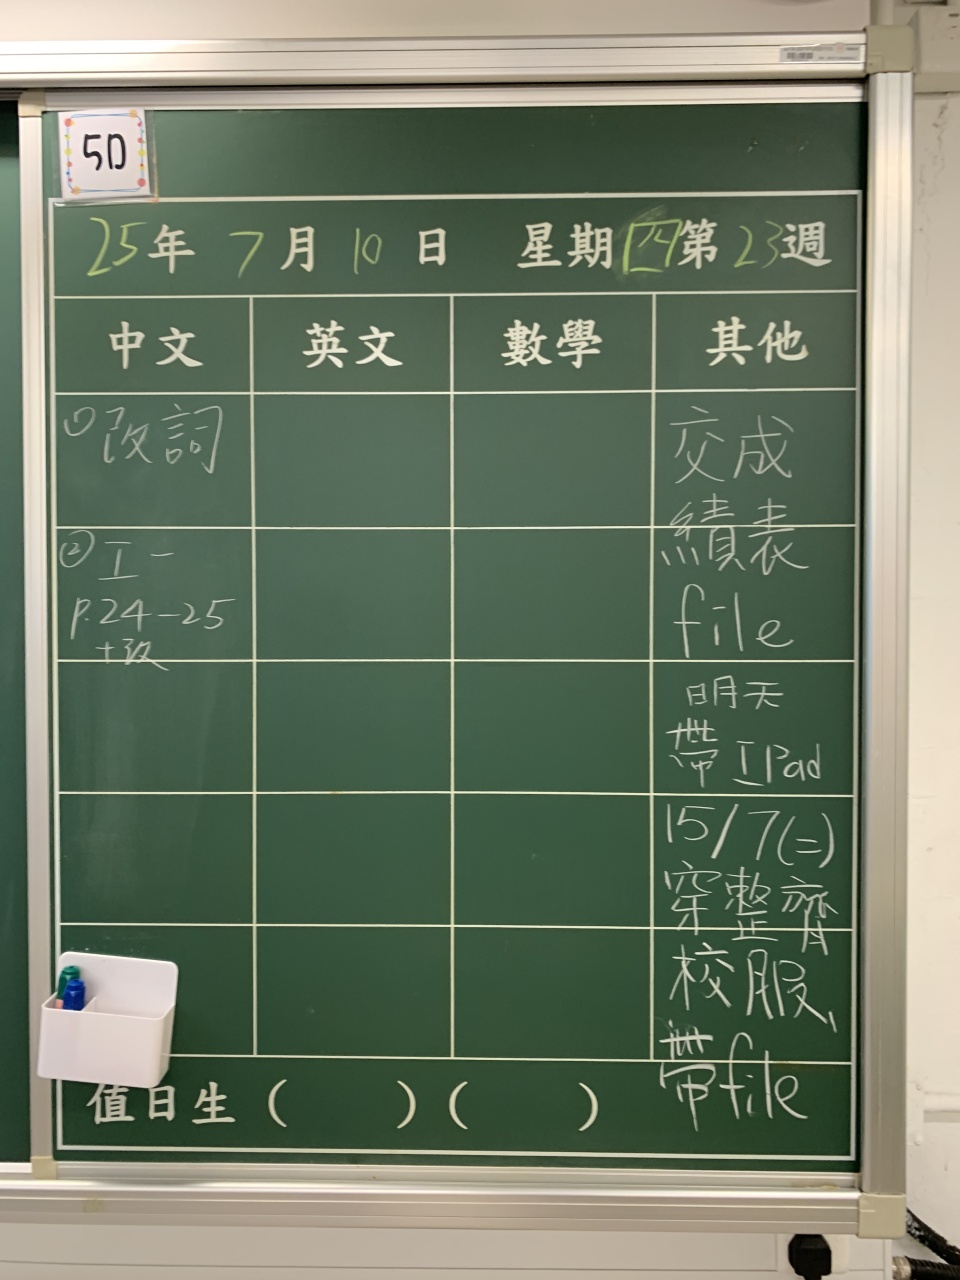 5D
25年 7月 10日 星期四第23週
中文 英文 數學 其他
① 改詞
② 工一
P.24-25
+改
交成
績表
file
明天
帶 IPad
15/7(二)
穿整齊
校服、
帶file
值日生 ( ) ( )